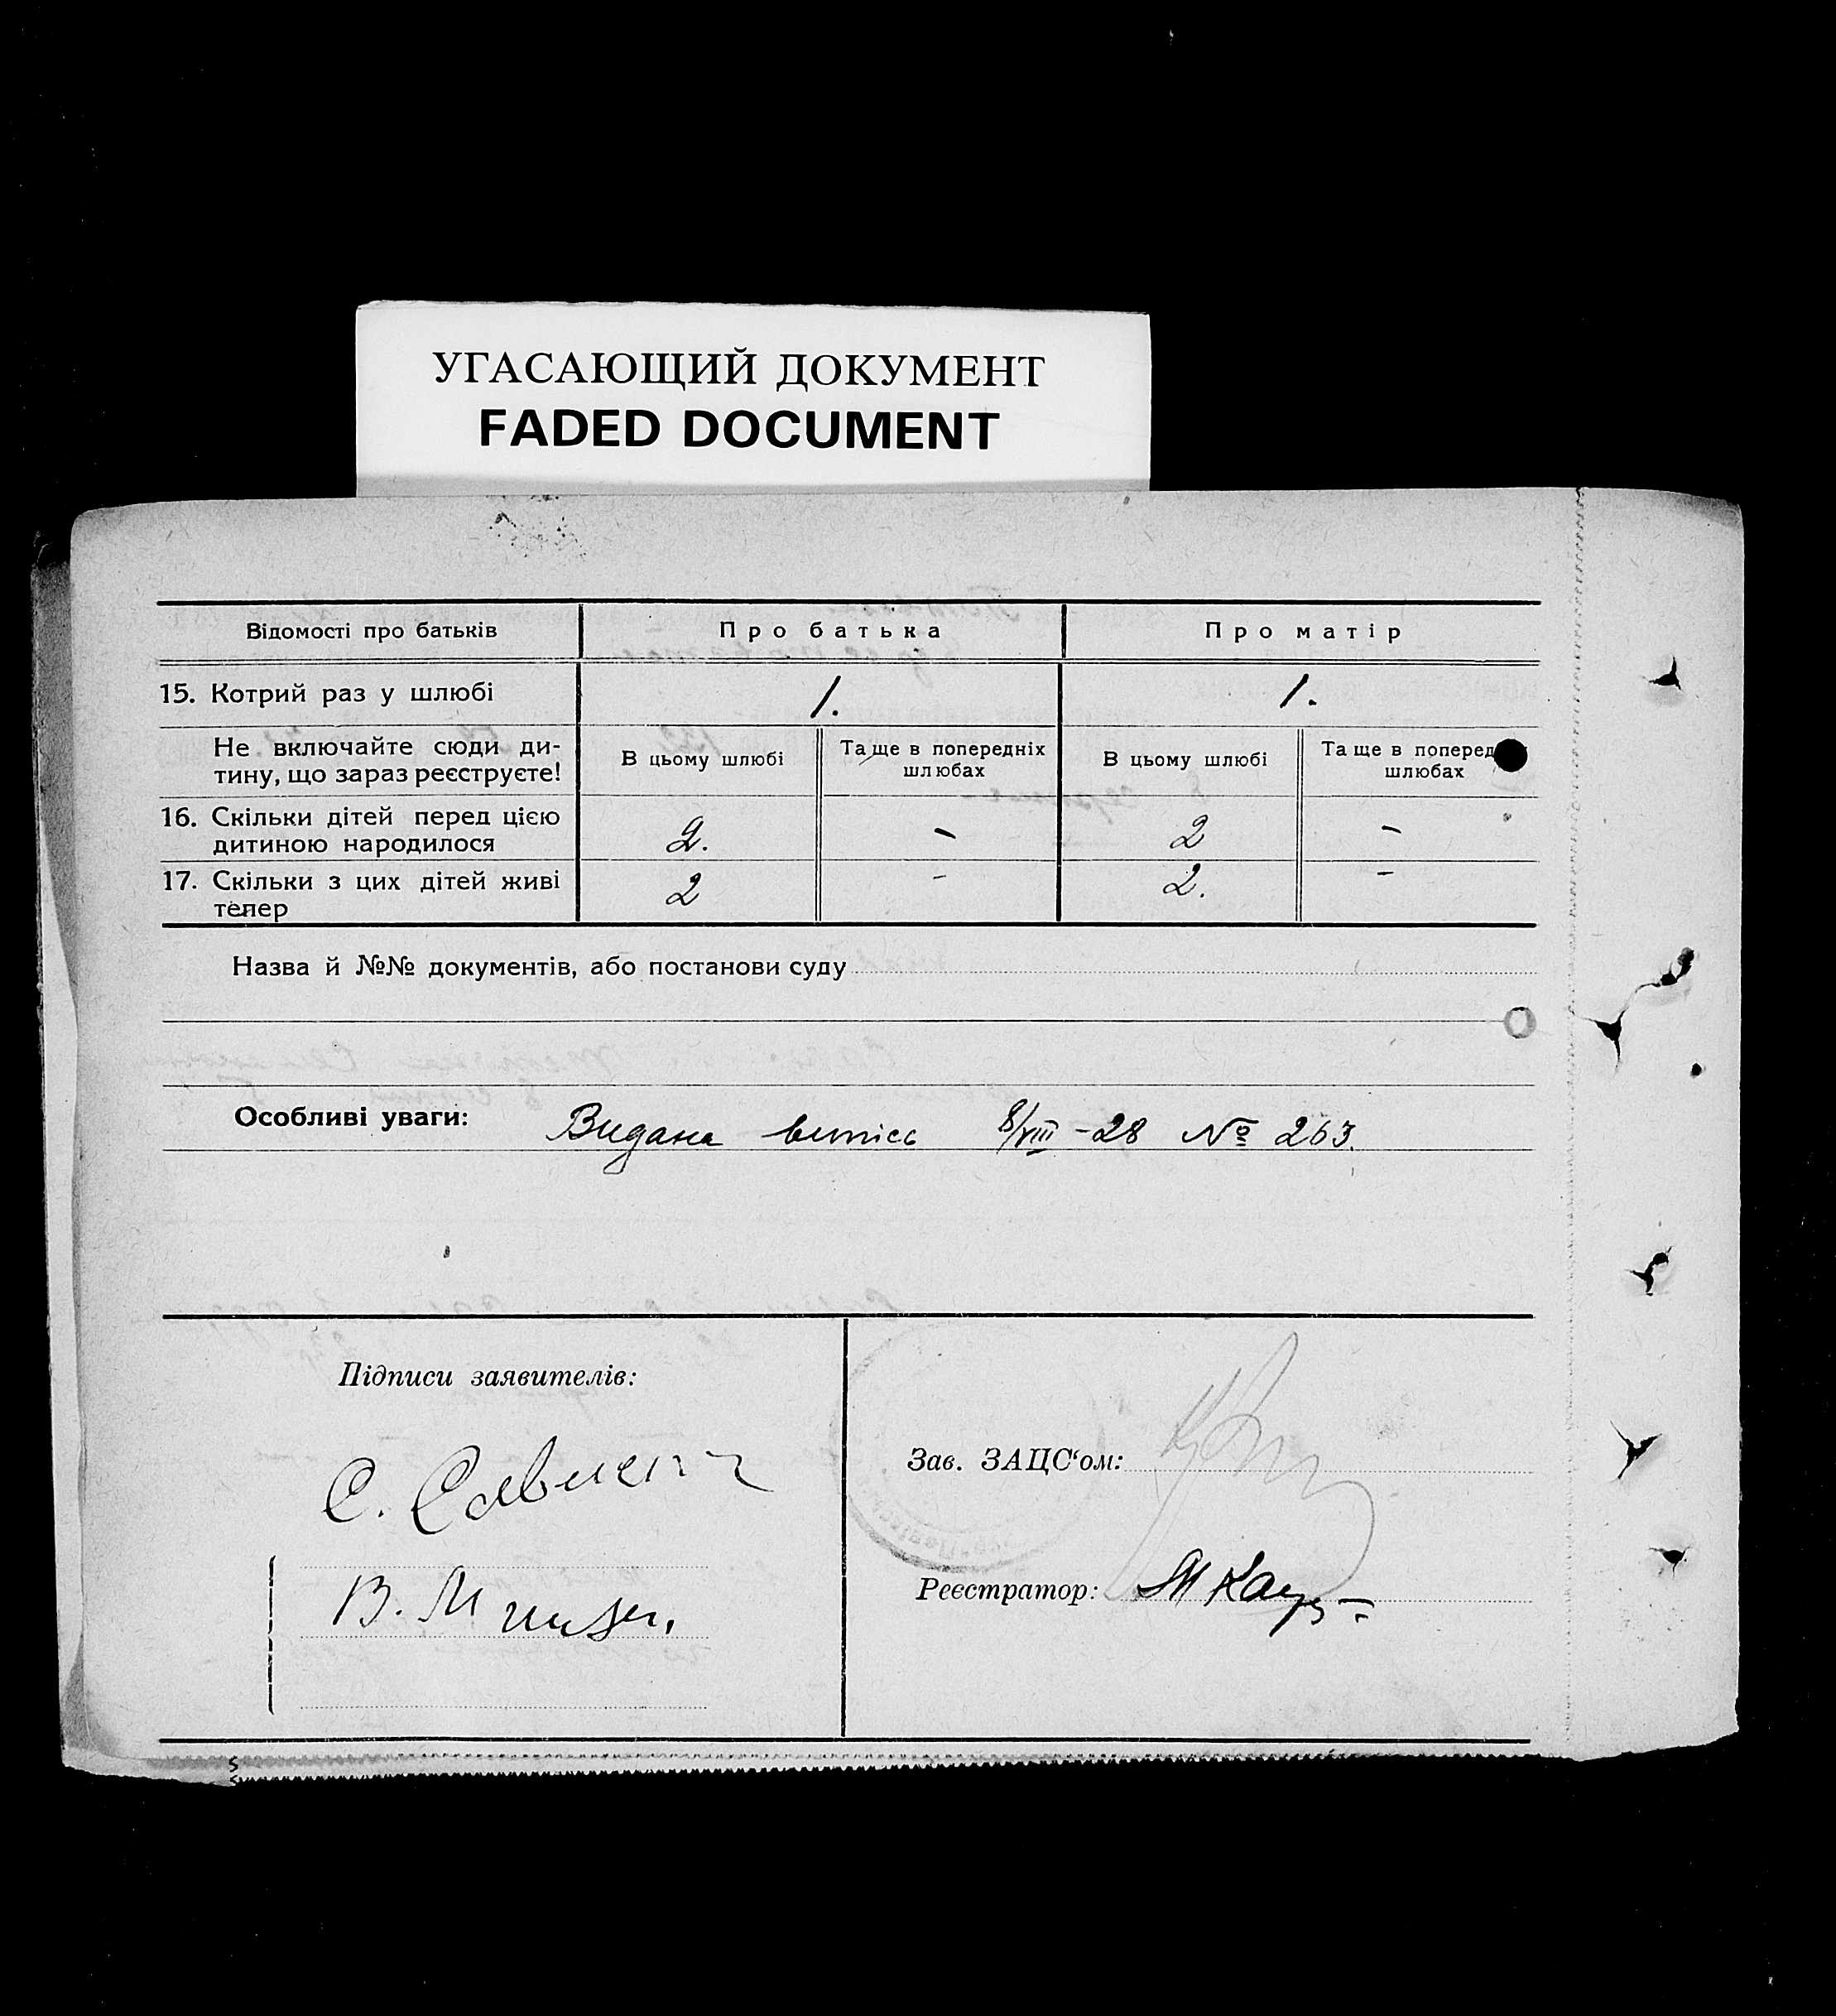 УГАСАЮЩИЙ ДОКУМЕНТ
FADED DOCUMENT
Відомості про батьків
Про батька
Про матір
15. Котрий раз у шлюбі
1.
1.
Не включайте сюди ди-
тину, що зараз реєструєте!
В цьому шлюбі
Та ще в попередніх
шлюбах
В цьому шлюбі
Та ще в поперед
шлюбах
16. Скільки дітей перед цією
дитиною народилося
2.
–
2
–
17. Скільки з цих дітей живі
тепер
2
–
2.
–
Назва й №№ документів, або постанови суду
Особливі уваги: Видана випісь 8/VIII – 28 № 263.
Підписи заявителів:
С.
В.
Зав. ЗАЦС‘ом:
Реєстратор: